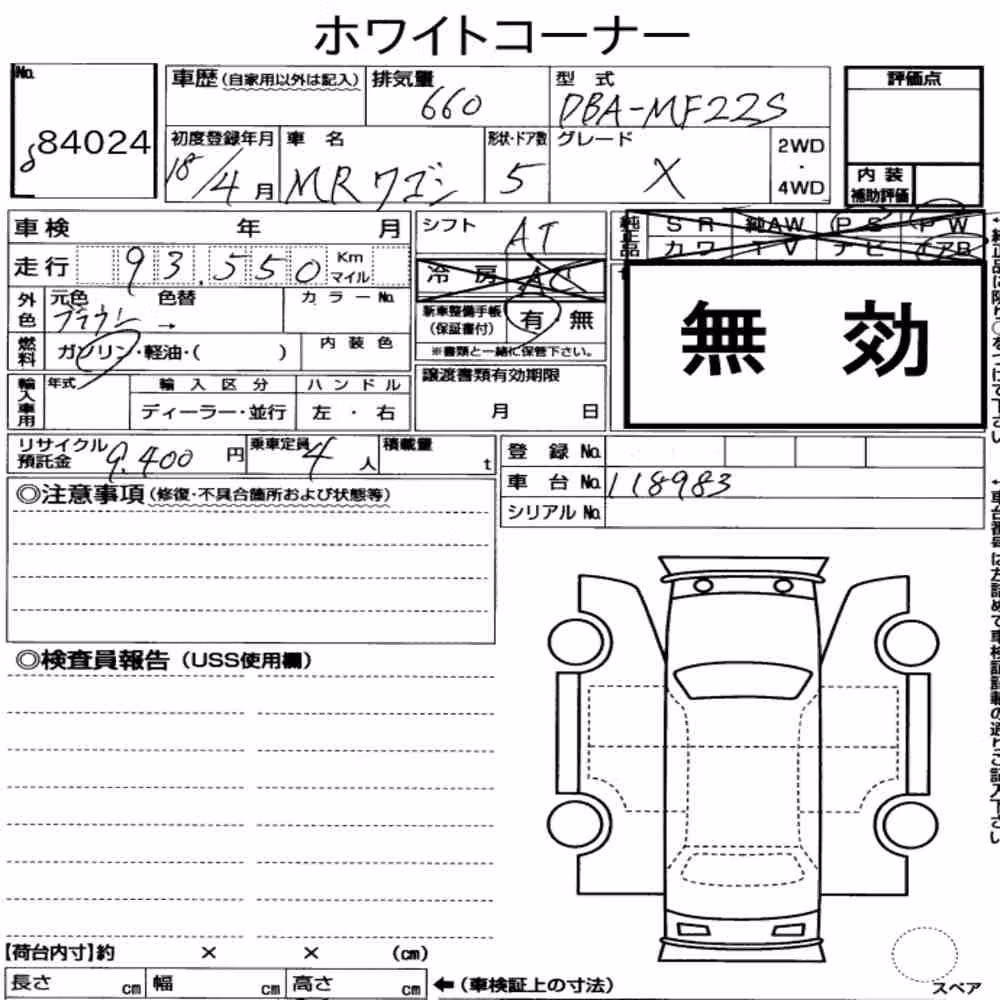 ホワイトコーナー
No.
84024
車歴(自家用以外は記入)
排気量
660
型 式
DBA-MF22S
評価点
初度登録年月
18/4月
車 名
MRワゴン
形状・ドア数
5
グレード
X
2WD
・
4WD
内 装
補助評価
車検 年 月
シフト
AT
純正品
S R 純AW P S P W
カワ T V ナビ エアB
走行 93,550 Km
マイル
冷 房 A C
外色
元色 色替
ブラウン →
カラーNo.
新車整備手帳
(保証書付)
有 無
※書類と一緒に保管下さい。
無 効
燃料
ガソリン・軽油・( )
内 装 色
輸入車用
年式
輸 入 区 分
ハ ン ド ル
ディーラー・並行
左 ・ 右
譲渡書類有効期限
月 日
リサイクル
預託金
9,400 円
乗車定員
4人
積載量
t
登 録 No.
車 台 No.
118983
シリアル No.
◎注意事項(修復・不具合箇所および状態等)
◎検査員報告(USS使用欄)
←純正品に限り○をつけて下さい
←車台番号は左詰めで車検証記載の通りご記入下さい
【荷台内寸】約 × × (cm)
長さ cm 幅 cm 高さ cm ←(車検証上の寸法)
スペア